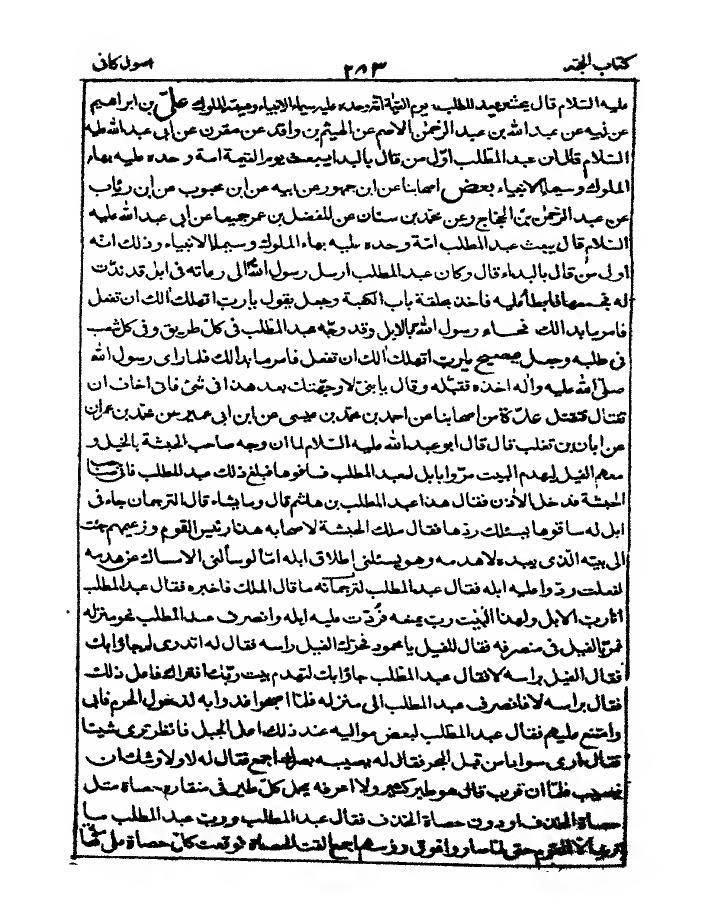 كتاب الحجة ٢٨٣ اصول كافى
عليه السلام قال يبعث عبد المطلب يوم القيمة امة وحده عليه سيماء الانبياء وهيبة الملوك علىّ بن ابراهيم
عن ابيه عن عبد الله بن عبد الرحمٰن الاصم عن الهيثم بن واقد عن مقرن عن ابى عبد الله عليه
السلام قال ان عبد المطلب اوّل من قال بالبدا يبعث يوم القيمة امة وحده عليه بهاء
الملوك وسيماء الانبياء بعض اصحابنا عن ابن جمهور عن ابيه عن ابن محبوب عن ابن رئاب
عن عبد الرحمٰن بن الحجاج وعن محمد بن سنان عن المفضل بن عمر جميعا عن ابى عبد الله عليه
السلام قال يبعث عبد المطلب امة وحده عليه بهاء الملوك وسيماء الانبياء وذلك انّه
اول من قال بالبداء قال وكان عبد المطلب ارسل رسول الله الى رعاته فى ابل قد ندّت
له فجمعها فابطأ عليه فاخذ بحلقة باب الكعبة وجعل يقول يا رب اتهلك آلك ان تفعل
فامر ما بدا لك فجاء رسول الله بالابل وقد وجّه عبد المطلب فى كلّ طريق وفى كل شعب
فى طلبه وجعل يصيح يا رب اتهلك آلك ان تفعل فامر ما بدا لك فلما راى رسول الله
صلى الله عليه واله اخذه فقبّله وقال يا بنىّ لا وجّهتك بعد هذا فى شئ فانى اخاف ان
تغتال فتقتل عدّة من اصحابنا عن احمد بن محمد بن عيسى عن ابن ابى عمير عن محمد بن حمران
عن ابان بن تغلب قال قال ابو عبد الله عليه السلام لما ان وجه صاحب الحبشة بالخيل و
معهم الفيل ليهدم البيت مرّوا بابل لعبد المطلب فساقوها فبلغ ذلك عبد المطلب فاتى صاحب
الحبشة فدخل الآذن فقال هذا عبد المطلب بن هاشم قال وما يشاء قال الترجمان جاء فى
ابل له ساقوها يسئلك ردّها فقال ملك الحبشة لاصحابه هذا رئيس القوم وزعيمهم جئت
الى بيته الذى يعبده لاهدمه وهو يسئلنى اطلاق ابله اما لو سألنى الامساك عن هدمه
لفعلت ردّوا عليه ابله فقال عبد المطلب لترجمانه ما قال الملك فاخبره فقال عبد المطلب
انا رب الابل ولهذا البيت رب يمنعه فرُدّت عليه ابله وانصرف عبد المطلب نحو منزله
فمرّ بالفيل فى منصرفه فقال للفيل يا محمود فحرّك الفيل راسه فقال له اتدرى لم جاؤا بك
فقال الفيل براسه لا فقال عبد المطلب جاؤا بك لتهدم بيت ربّك افتراك فاعل ذلك
فقال براسه لا فانصرف عبد المطلب الى منزله فلمّا اصبحوا غدوا به لدخول الحرم فابى
وامتنع عليهم فقال عبد المطلب لبعض مواليه عند ذلك اعل الجبل فانظر ترى شيئا
فقال ارى سوادا من قبل البحر فقال له يصيبه بصرك اجمع فقال له لا ولاوشك ان
يصيب فلمّا ان قرب قال هو طير كثير ولا اعرفه يحمل كلّ طير فى منقاره حصاة مثل
حصاة الخذف او دون حصاة الخذف فقال عبد المطلب ورب عبد المطلب ما
تريد الا القوم حتى لمّا صاروا فوق رؤسهم اجمع القت الحصاة فوقعت كلّ حصاة على